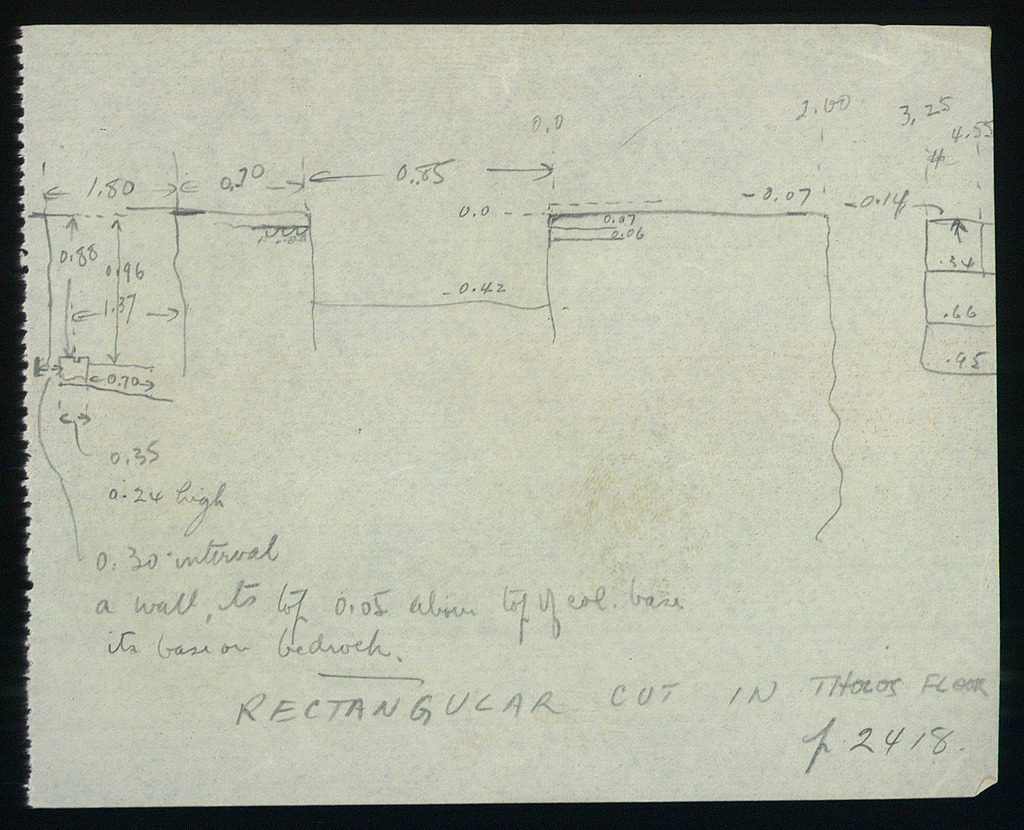 0.0 2.00 3.25
4.55
1.80 0.70 0.85
0.0 -0.07 -0.14
0.07
0.06
0.88 0.96
.34
-0.42
1.37
.66
0.70
.95
0.35
0.24 high
0.30 interval
a wall, its top 0.05 above top of col. base
its base on bedrock.
RECTANGULAR CUT IN THOLOS FLOOR
p. 2418.